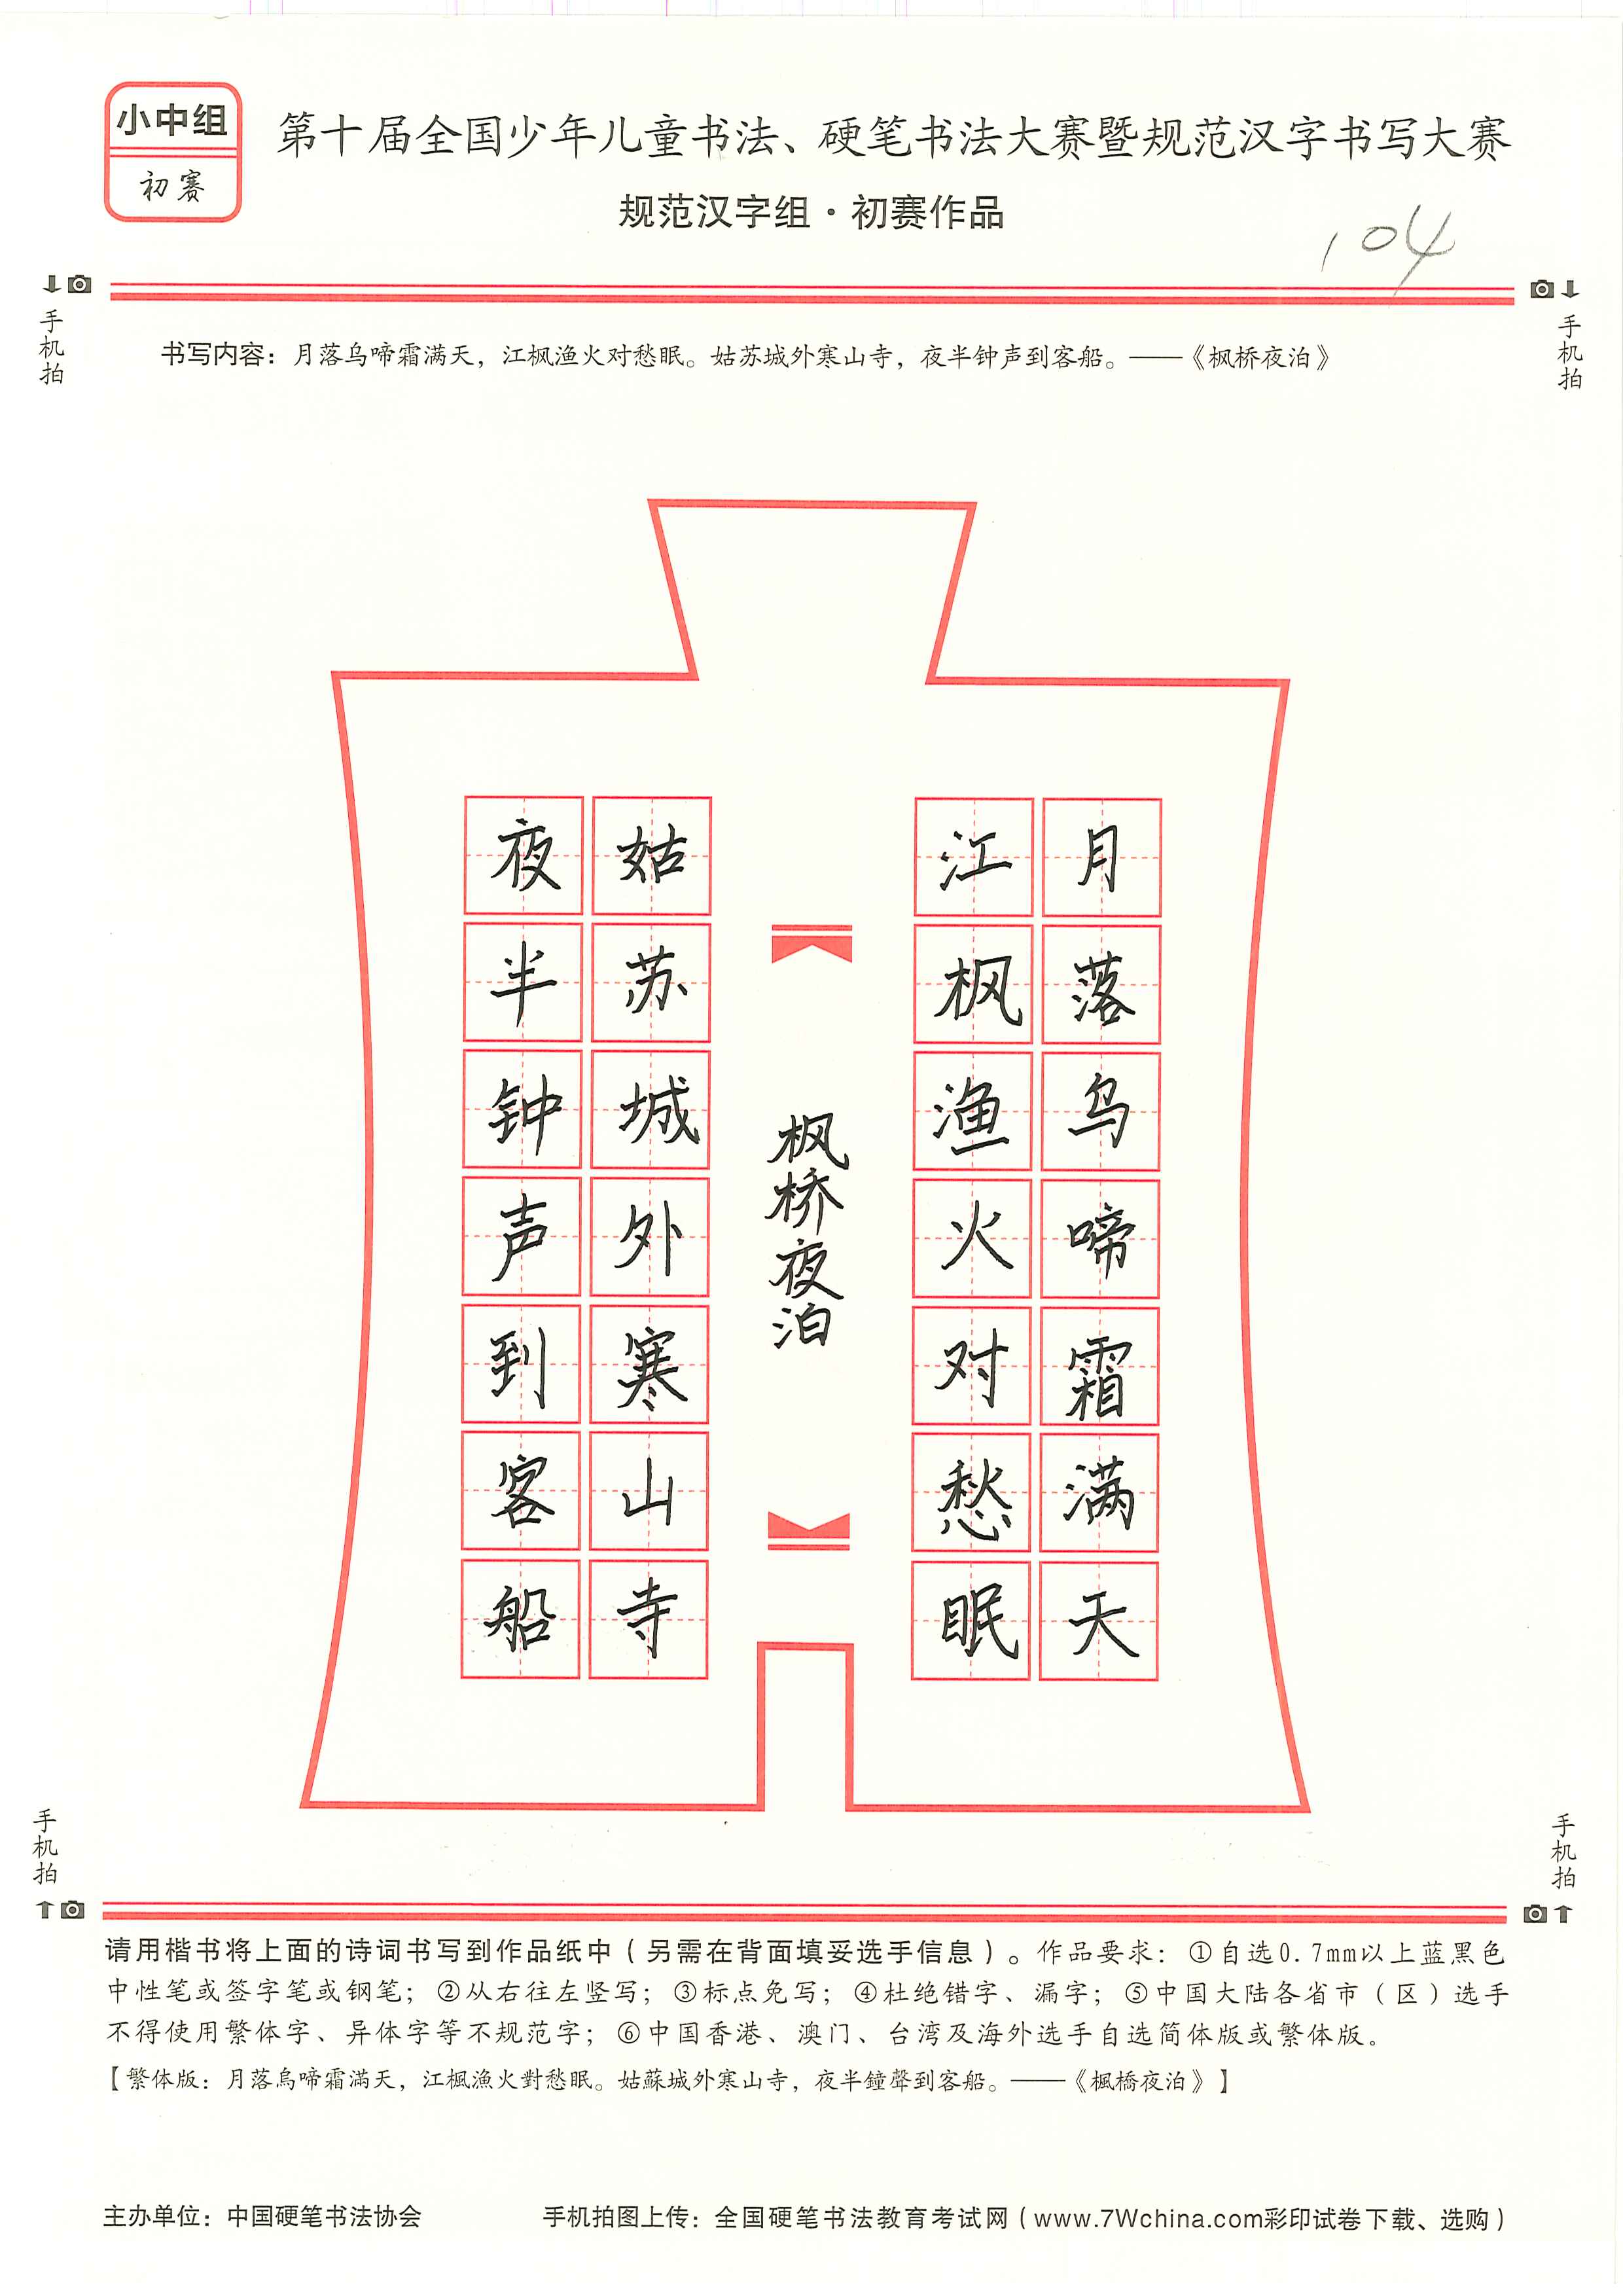 小中组
初赛
第十届全国少年儿童书法、硬笔书法大赛暨规范汉字书写大赛
规范汉字组·初赛作品
104
手机拍
手机拍
书写内容：月落乌啼霜满天，江枫渔火对愁眠。姑苏城外寒山寺，夜半钟声到客船。——《枫桥夜泊》
月落乌啼霜满天
江枫渔火对愁眠
枫桥夜泊
姑苏城外寒山寺
夜半钟声到客船
手机拍
手机拍
请用楷书将上面的诗词书写到作品纸中（另需在背面填妥选手信息）。作品要求：①自选0.7mm以上蓝黑色
中性笔或签字笔或钢笔；②从右往左竖写；③标点免写；④杜绝错字、漏字；⑤中国大陆各省市（区）选手
不得使用繁体字、异体字等不规范字；⑥中国香港、澳门、台湾及海外选手自选简体版或繁体版。
【繁体版：月落烏啼霜滿天，江楓漁火對愁眠。姑蘇城外寒山寺，夜半鐘聲到客船。——《楓橋夜泊》】
主办单位：中国硬笔书法协会
手机拍图上传：全国硬笔书法教育考试网（www.7Wchina.com彩印试卷下载、选购）